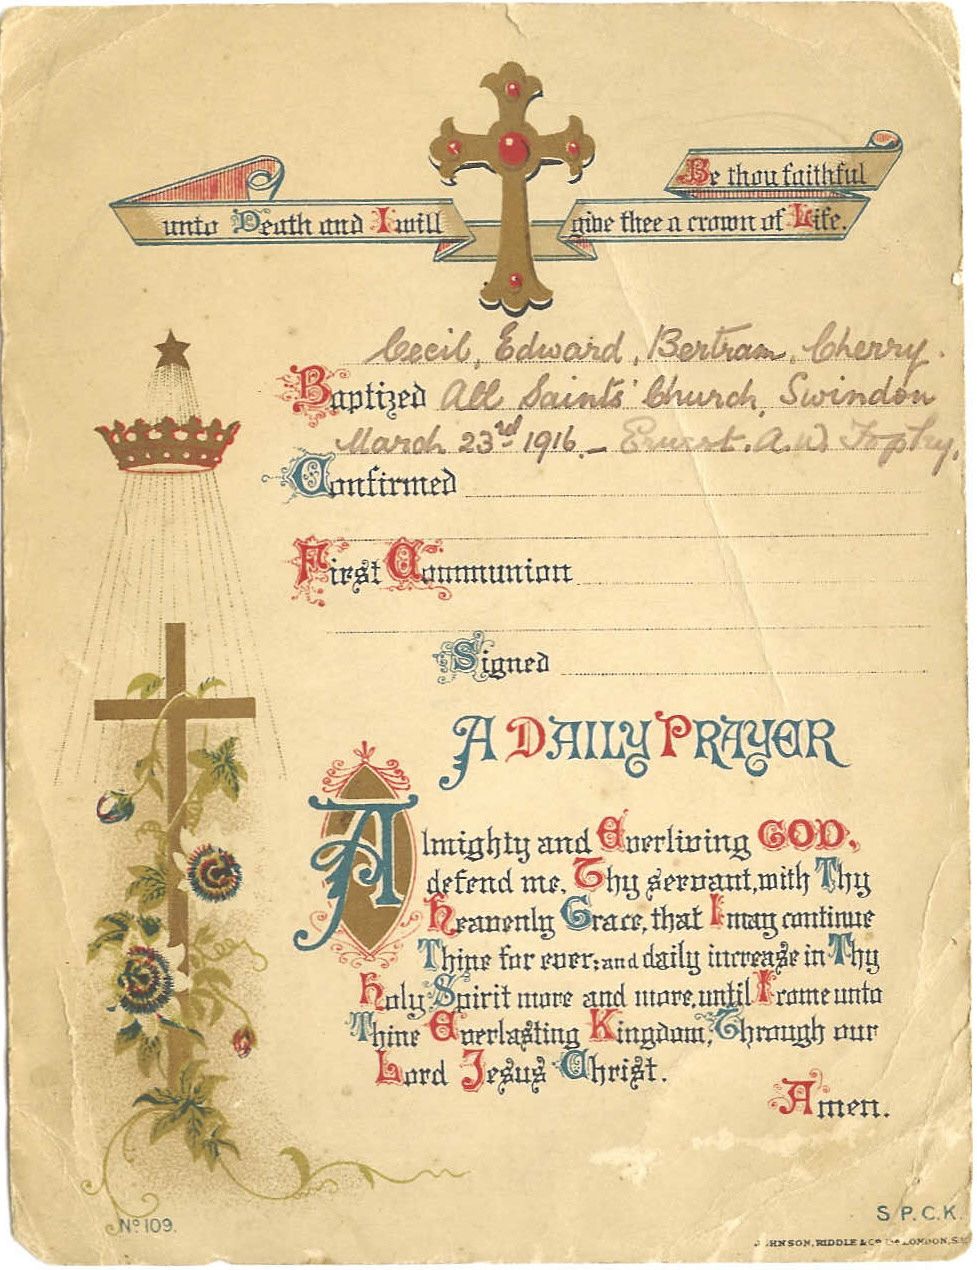 Be thou faithful
unto Death and I will give thee a crown of Life.
Cecil, Edward, Bertram, Cherry.
Baptized All Saints' Church, Swindon
March 23rd 1916. – Ernest. A. W. Topley.
Confirmed
First Communion
Signed
A DAILY PRAYER
Almighty and Everliving GOD,
defend me, Thy servant, with Thy
Heavenly Grace, that I may continue
Thine for ever; and daily increase in Thy
Holy Spirit more and more, until I come unto
Thine Everlasting Kingdom, Through our
Lord Jesus Christ.
Amen.
No 109.
S.P.C.K.
JOHNSON, RIDDLE & Co Ltd LONDON, S.E.